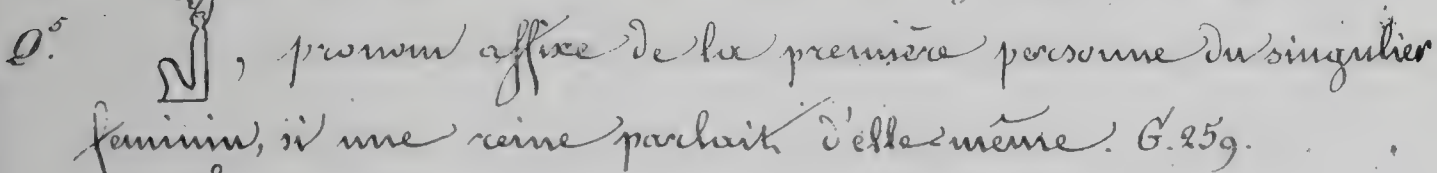 Q.⁵ , pronom affixe de la première personne du singulier
feminin, si une reine parlait d'elle même. G. 259.